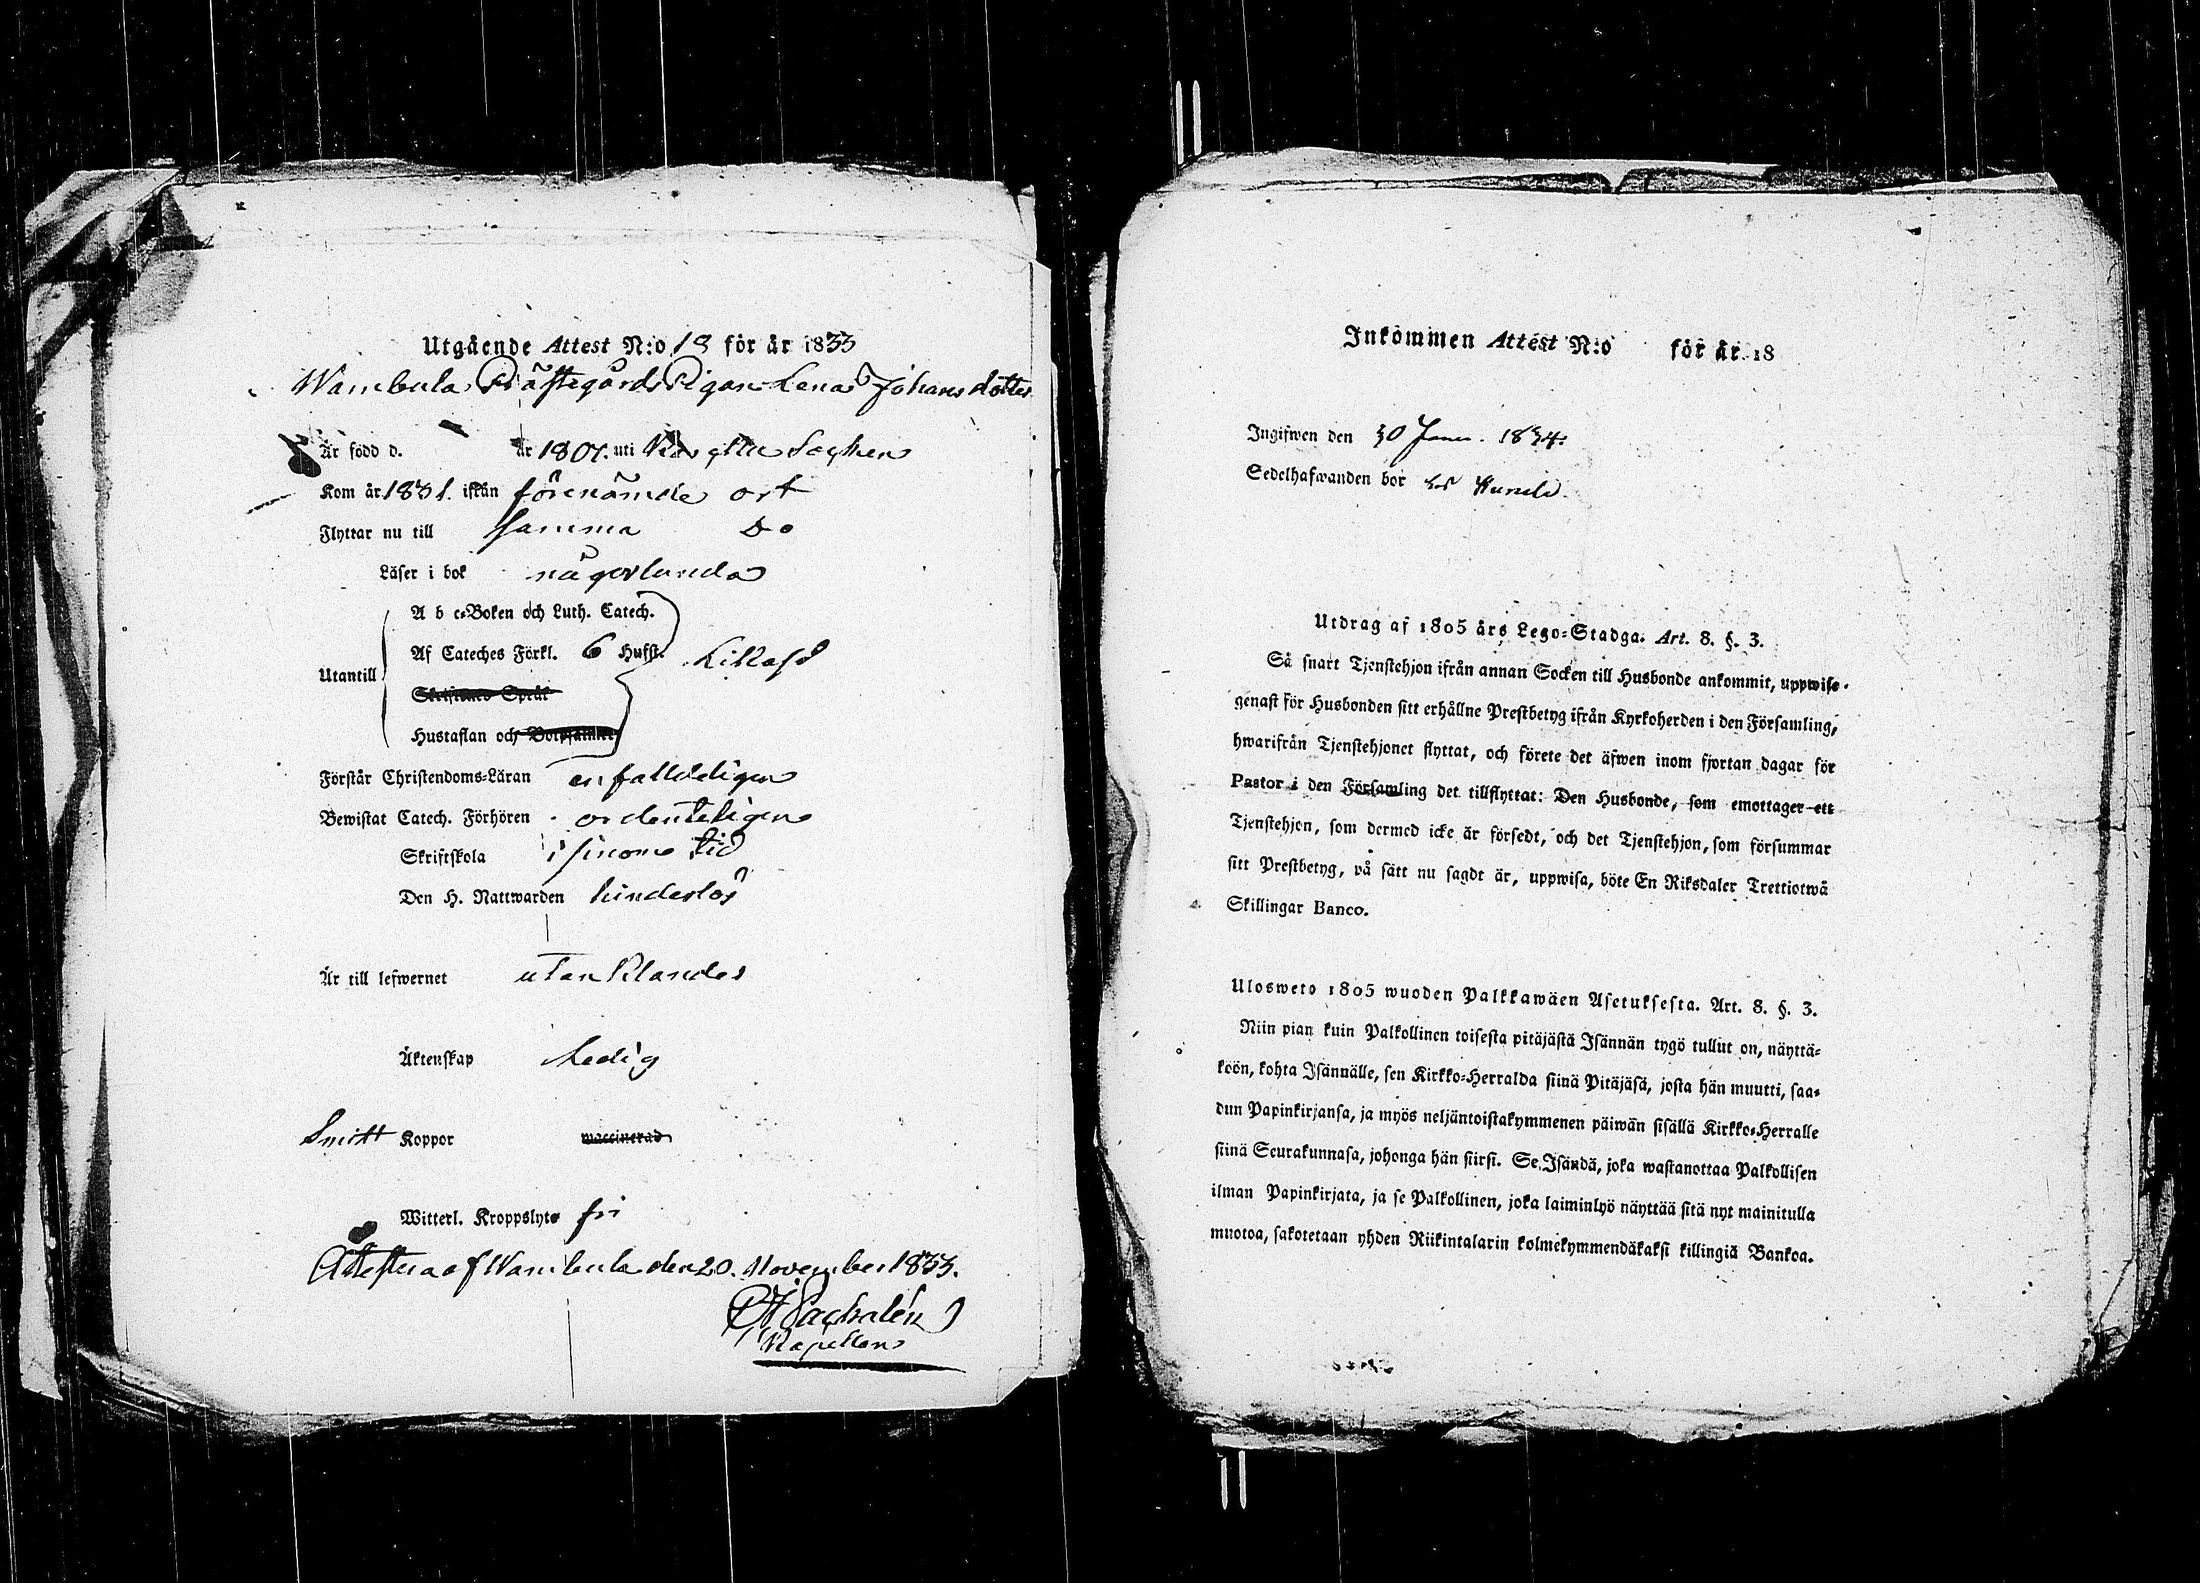 Utgående Attest N:o 18 för år 1833
Wambula Prästegårds Pigan Lena Johans dotter
Är född d. år 1807. uti Socken
Kom år 1831. ifrån förenämde ort
Flyttar nu till samma Do
Läser i bok någorlunda
A b c-Boken och Luth. Catech.
Af Cateches Förkl. 6 Hufst. Likaså
Utantill
Skriftenes Språk
Hustaflan och Botpsalmer
Förstår Christendoms-Läran enfalldeligen
Bewistat Catech. Förhören ordenteligen
Skriftskola i sinom tid
Den H. Nattwarden hinderlös
Är till lefwernet utan Klander
Äktenskap Ledig
Smitt Koppor waccinerad
Witterl. Kroppslyte fri
Attesteras af Wambula den 20. November 1833.
Kapellan
Inkommen Attest N:o för år 18
Ingifwen den 30 Janu. 1834.
Sedelhafwanden bor
Utdrag af 1805 års Lego-Stadga. Art. 8. §. 3.
Så snart Tjenstehjon ifrån annan Socken till Husbonde ankommit, uppwise
genast för Husbonden sitt erhållne Prestbetyg ifrån Kyrkoherden i den Församling,
hwarifrån Tjenstehjonet flyttat, och förete det äfwen inom fjortan dagar för
Pastor i den Församling det tillflyttat: Den Husbonde, som emottager ett
Tjenstehjon, som dermed icke är försedt, och det Tjenstehjon, som försummar
sitt Prestbetyg, på sätt nu sagdt är, uppwisa, böte En Riksdaler Trettiotwå
Skillingar Banco.
Ulosweto 1805 wuoden Palkkawäen Asetuksesta. Art. 8. §. 3.
Niin pian kuin Palkollinen toisesta pitäjästä Isännän tygö tullut on, näyttä-
köön, kohta Isännälle, sen Kirkko-Herralda siinä Pitäjäsä, josta hän muutti, saa-
dun Papinkirjansa, ja myös neljäntoistakymmenen päiwän sisällä Kirkko-Herralle
siinä Seurakunnasa, johonga hän siirsi. Se Isändä, joka wastanottaa Palkollisen
ilman Papinkirjata, ja se Palkollinen, joka laiminlyö näyttää sitä nyt mainitulla
muotoa, sakotetaan yhden Riikintalarin kolmekymmendäkaksi killingiä Bankoa.